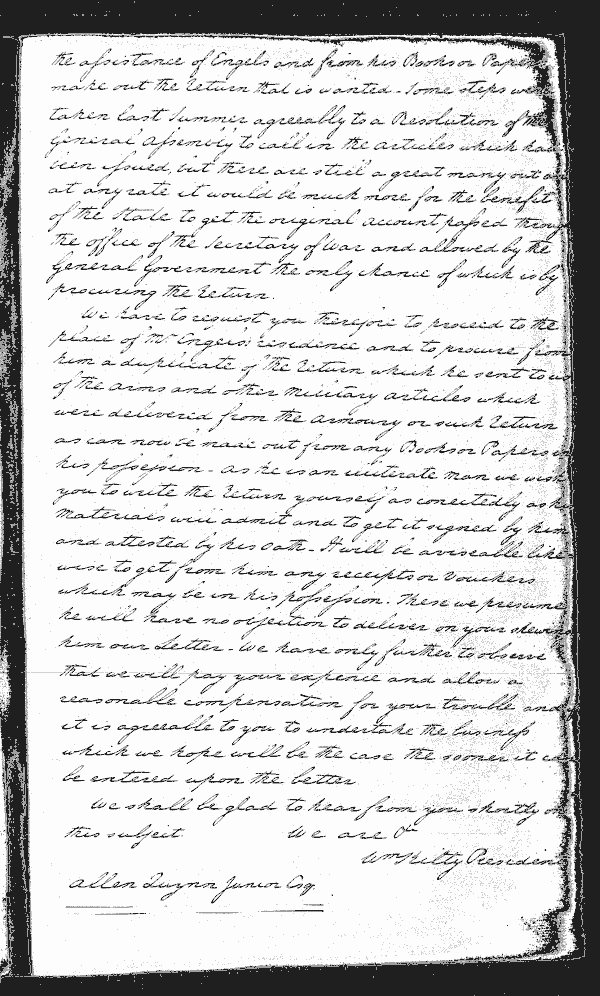 the assistance of Engels and from his Books or Papers
make out the Return that is wanted - Some steps were
taken last Summer agreeably to a Resolution of the
General Assembly to call in the articles which had
been issued, but there are still a great many out and
at any rate it would be much more for the benefit
of the State to get the original account passed through
the office of the Secretary of War and allowed by the
General Government the only chance of which is by
procuring the Return.
We have to request you therefore to proceed to the
place of Mr Engels's residence and to procure from
him a duplicate of the Return which he sent to us
of the Arms and other Military Articles which
were delivered from the Armoury or such Return
as can now be made out from any Books or Papers in
his possession - As he is an illiterate man we wish
you to write the Return yourself as correctedly as his
Materials will admit and to get it signed by him
and attested by his Oath - It will be aviseable like
wise to get from him any receipts or Vouchers
which may be in his possession. These we presume
he will have no objection to deliver on your shewing
him our Letter - We have only further to observe
that we will pay your expence and allow a
reasonable compensation for your trouble and if
it is agreeable to you to undertake the business
which we hope will be the case the sooner it can
be entered upon the better
We shall be glad to hear from you shortly on
this subject We are &c
Wm Kilty President
Allen Quynn Junior Esq.